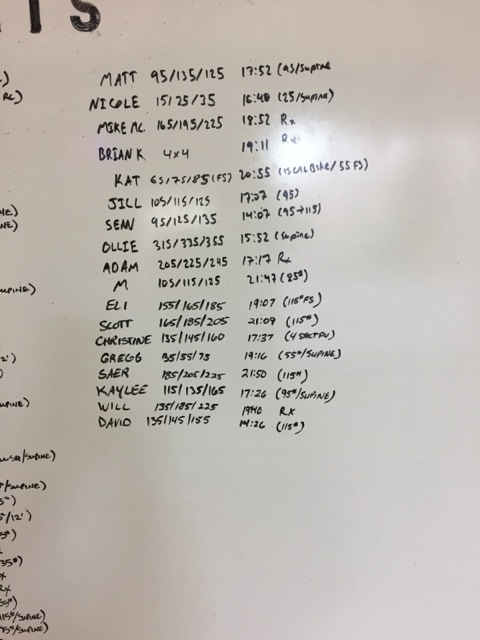 ITS
MATT 95/135/125 17:52 (95/SUPINE
NICOLE 15/25/35 16:40 (25/SUPINE)
MIKE MC. 165/195/225 18:52 Rx
BRIAN K. 4x4 19:11 Rx
KAT 65/75/85(FS) 20:55 (15 CAL BIKE/55 FS)
JILL 105/115/125 17:27 (95)
SEAN 95/125/135 14:07 (95→115)
OLLIE 315/335/355 15:52 (SUPINE)
ADAM 205/225/245 17:17 Rx
M 105/115/125 21:47 (85#)
ELI 155/165/185 19:07 (115#FS)
SCOTT 165/185/205 21:09 (115#)
CHRISTINE 135/145/160 17:37
GREGG 35/55/75 19:16 (55#/SUPINE)
SAER 185/205/225 21:50 (115#)
KAYLEE 115/135/165 17:26 (95#/SUPINE)
WILL 135/185/225 1940 Rx
DAVID 135/145/155 (115#)